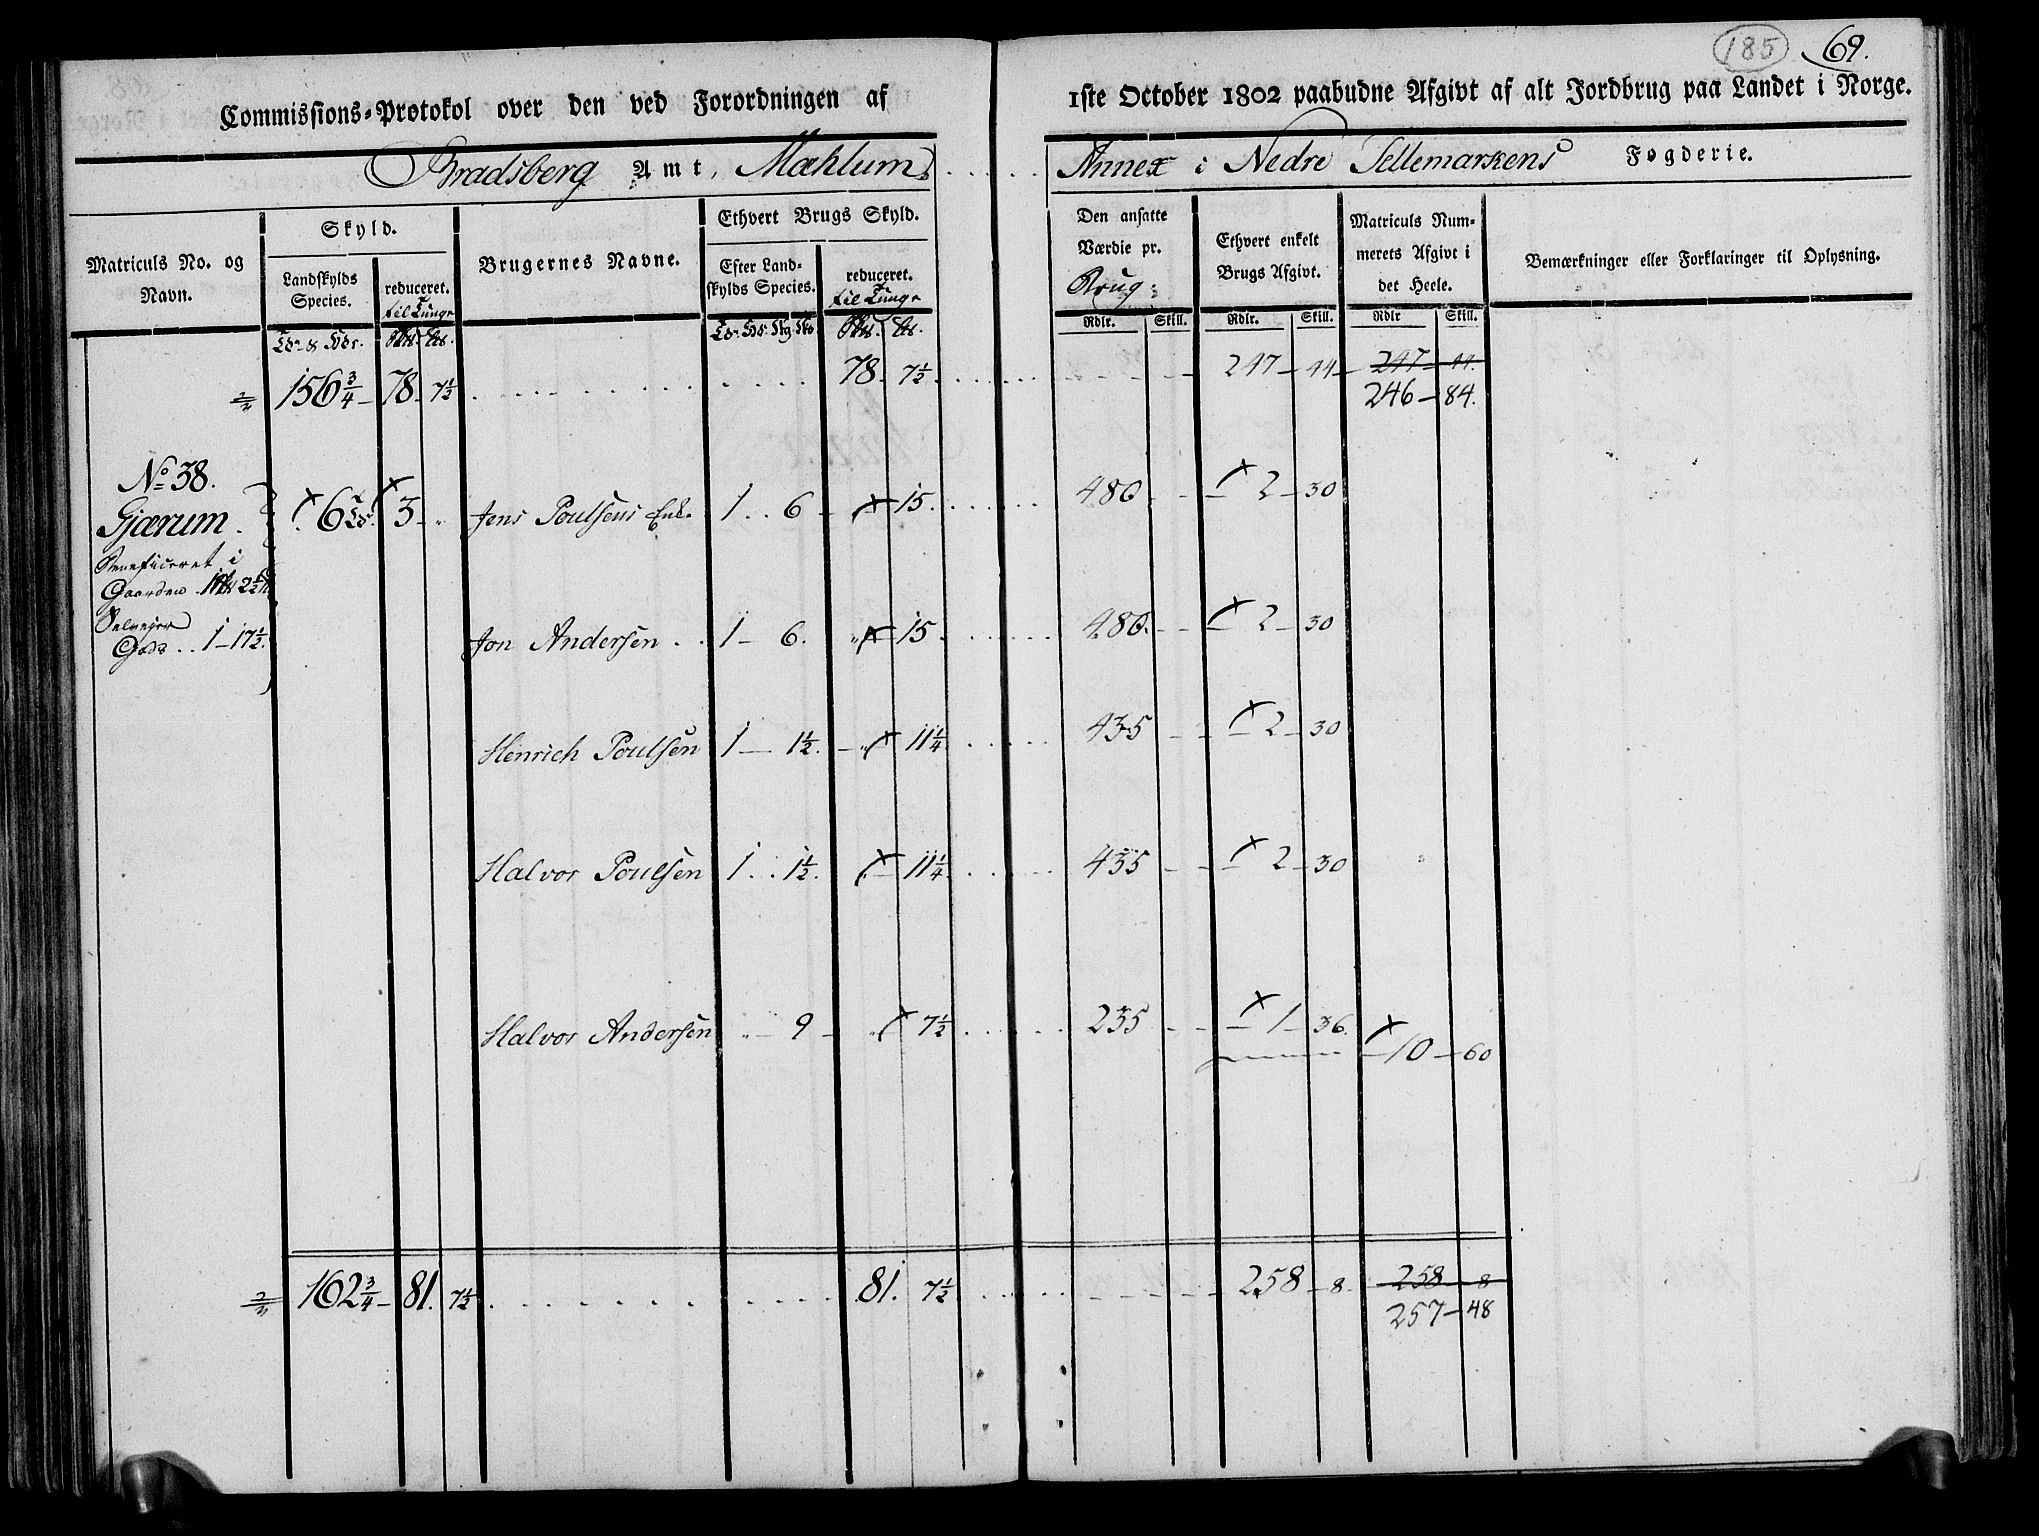 185 69.
Commissions-Protokol over den ved Forordningen af 1ste October 1802 paabudne Afgivt af alt Jordbrug paa Landet i Norge.
Bradsberg Amt, Mæhlum Annex i Nedre Tellemarkens Fogderie.
Matriculs No. og Navn.
Skyld.
Landskylds Species.
reduceret. til Tunge
Brugernes Navne.
Ethvert Brugs Skyld.
Efter Landskylds Species.
reduceret. til Tunge
Den ansatte Værdie pr. Brug:
Ethvert enkelt Brugs Afgivt.
Matriculs Nummerets Afgivt i det Heele.
Bemærkninger eller Forklaringer til Oplysning.
Rdlr. Skill. Rdlr. Skill. Rdlr Skill.
156 3/4 78 7 1/2 78 7 1/2 247 44 247 44.
246 84.
No 38.
Gjærum. 6 3 Jens Poulsens Enk. 1 6 15. 480 2 30
Beneficeret i
Gaarden 2 1/2
Selvejer
Gods 1 17 1/2. Jon Andersen 1 6. 15. 480. 2 30
Henrich Poulsen 1 1 1/2. 11 1/4. 435 2 30
Halvor Poulsen 1 1 1/2. 11 1/4. 435 2 30
Halvor Andersen 9 7 1/2 235 1 36. 10 60
162 3/4 81. 7 1/2 81. 7 1/2 258 8. 258 8
257 48